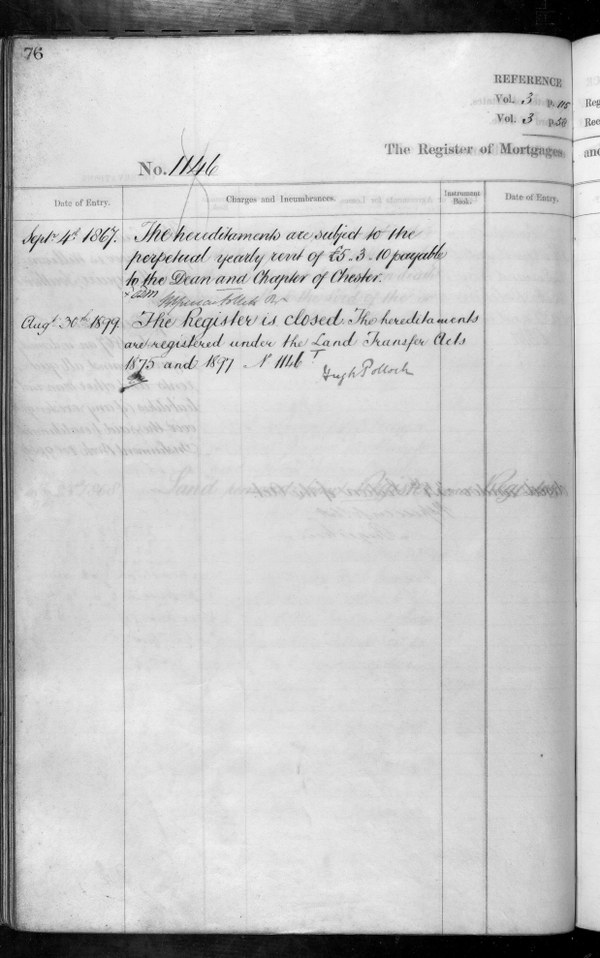 76
REFERENCE
Vol. 3 p. 115
Vol. 3 p. 50
The Register of Mortgages
and
No. 1146
Date of Entry. Charges and Incumbrances. Instrument Book. Date of Entry.
Septr 4th 1867. The hereditaments are subject to the
perpetual yearly rent of £5-3-10 payable
to the Dean and Chapter of Chester.
Augt 30th 1879 The Register is closed The hereditaments
are registered under the Land Transfer Acts
1875 and 1897 No 1146 T
Hugh Pollock